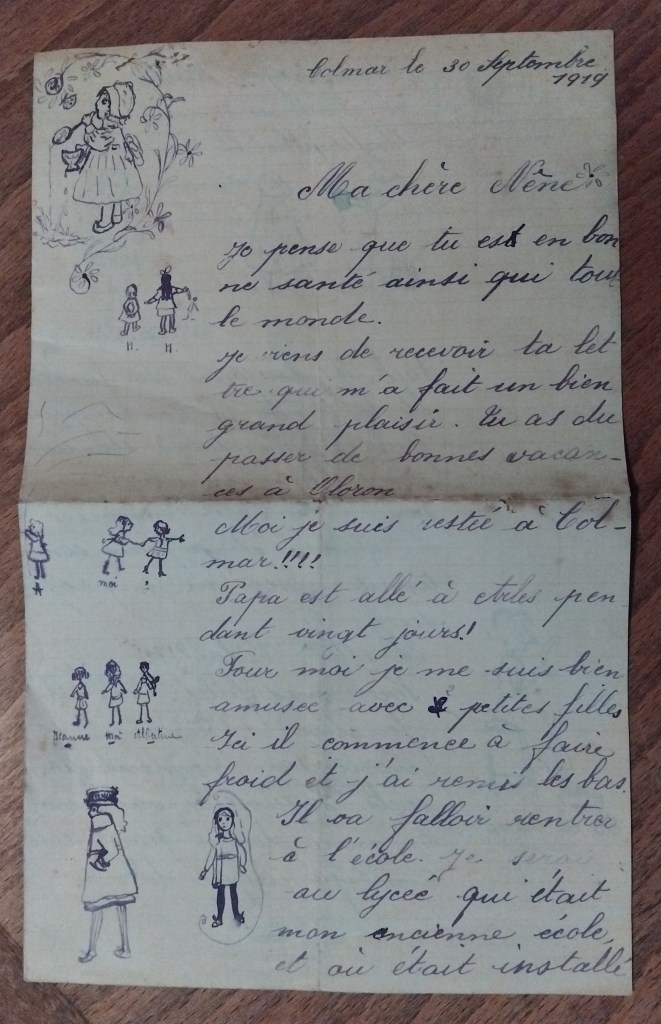 Colmar le 30 Septembre
1919
Ma chère Nêne
Je pense que tu est en bon
ne santé ainsi qui tout
le monde.
Je viens de recevoir ta let
tre qui m'a fait un bien
grand plaisir. Tu as du
passer de bonnes vacan-
ces à Oloron
Moi je suis restée à Col-
mar!!!!
Papa est allé à Arles pen
dant vingt jours!
Pour moi je me suis bien
amusée avec petites filles
Ici il commence à faire
froid et j'ai remis les bas.
Il va falloir rentrer
à l'école. Je serai
au lyceé qui était
mon ancienne école,
et où était installé
N. N.
moi !
Jeanne Moi Albertine